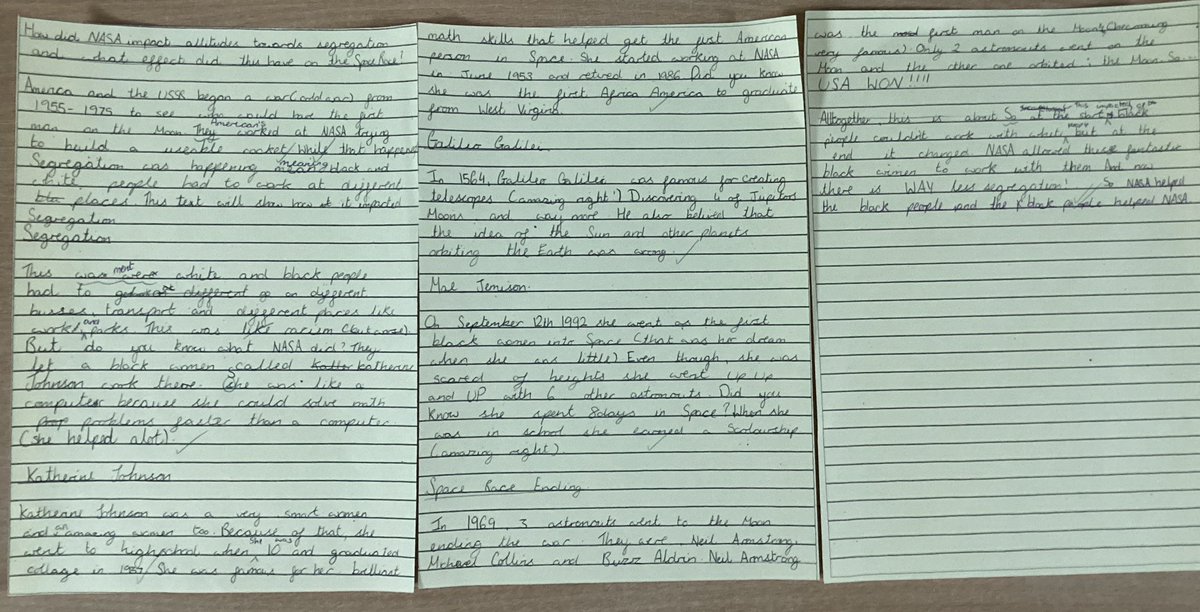 How did NASA impact attitudes towards segregation
and what effect did this have on the Space Race?
America and the USSR began a war (cold war) from
1955-1975 to see who could have the first
man on the Moon. They American's worked at NASA trying
to build a useable rocket. While that happens
Segregation was happening meaning black and
white people had to work at different
places. This text will show how it impacted
Segregation
Segregation
This ment white and black people
had to go on different
busses, transport and different places like
work and parks. This was like racism (but worse).
But do you know what NASA did? They
let a black women called Katherine
Johnson work there. She was like a
computer because she could solve math
problems faster than a computer.
(she helped alot).
Katherine Johnson
Katherine Johnson was a very smart women
and an amazing women too. Because of that, she
went to highschool when She was 10 and graduated
collage in 1937. She was famous for her brilliant
math skills that helped get the first American
person in Space. She started working at NASA
in June 1953 and retired in 1986. Did you know
she was the first Africa America to graduate
from West Virgina.
Galileo Galilei.
In 1564, Galileo Galilei was famous for creating
telescopes (amazing right!) Discovering 4 of Jupitors
Moons and way more. He also belived that
the idea of the Sun and other planets
orbiting the Earth was wrong.
Mae Jemison.
On September 12th 1992 she went as the first
black women into Space (that was her dream
when she was little). Even though, she was
scared of heights she went Up Up
and UP with 6 other astronauts. Did you
know she spent 8days in Space? When she
was in school she earned a Scolourship
(amazing right).
Space Race Ending.
In 1969, 3 astronauts went to the Moon
ending the war. They were Neil Armstrong,
Micheal Collins and Buzz Aldrin. Neil Armstrong
was the first man on the Moon (becoming
very famous) Only 2 astronauts went on the
Moon and the other one orbited the Moon. So...
USA WON!!!!
Alltogether, this is about So at the start black
people couldn't work with white but at the
end it changed. NASA allowed these fantastic
black wimen to work with them. And now
there is WAY less segregation! So NASA helped
the black people and the black people helped NASA.